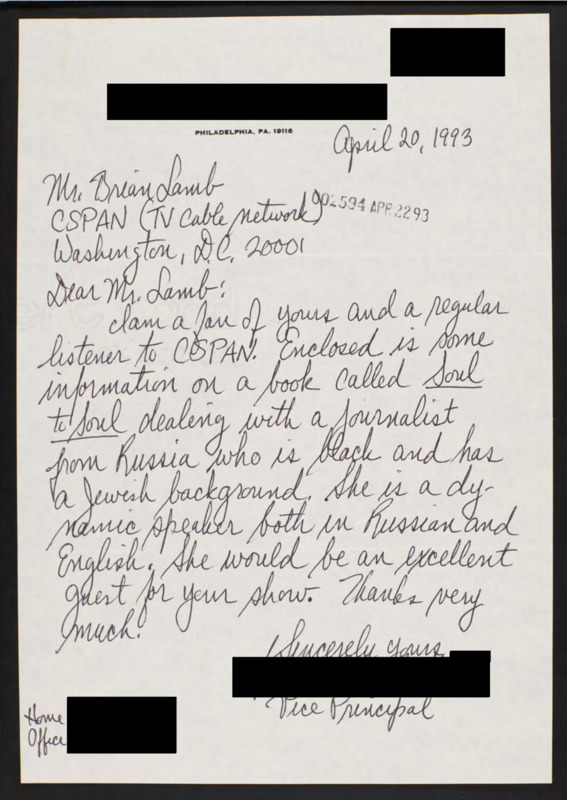 PHILADELPHIA, PA. 19116
April 20, 1993
Mr. Brian Lamb
CSPAN (TV cable network)
002594 APR 22 93
Washington, D.C. 20001
Dear Mr. Lamb:
I am a fan of yours and a regular
listener to CSPAN. Enclosed is some
information on a book called Soul
to Soul dealing with a journalist
from Russia who is black and has
a Jewish background. She is a dy-
namic speaker both in Russian and
English. She would be an excellent
guest for your show. Thanks very
much.
Sincerely yours,
Vice Principal
Home
Office